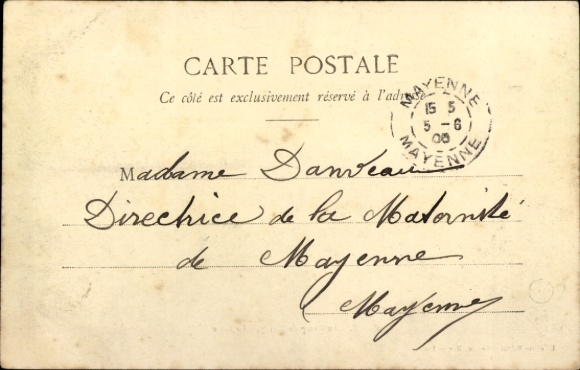 CARTE POSTALE
Ce côté est exclusivement réservé à l'adresse
MAYENNE
15 5
5 - 6
00
MAYENNE
Madame Danveau
Directrice de la Maternité
de Mayenne
Mayenne